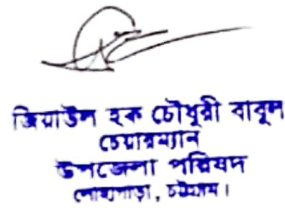 জিয়াউল হক চৌধুরী বাবুল
চেয়ারম্যান
উপজেলা পরিষদ
লোহাগাড়া, চট্টগ্রাম।